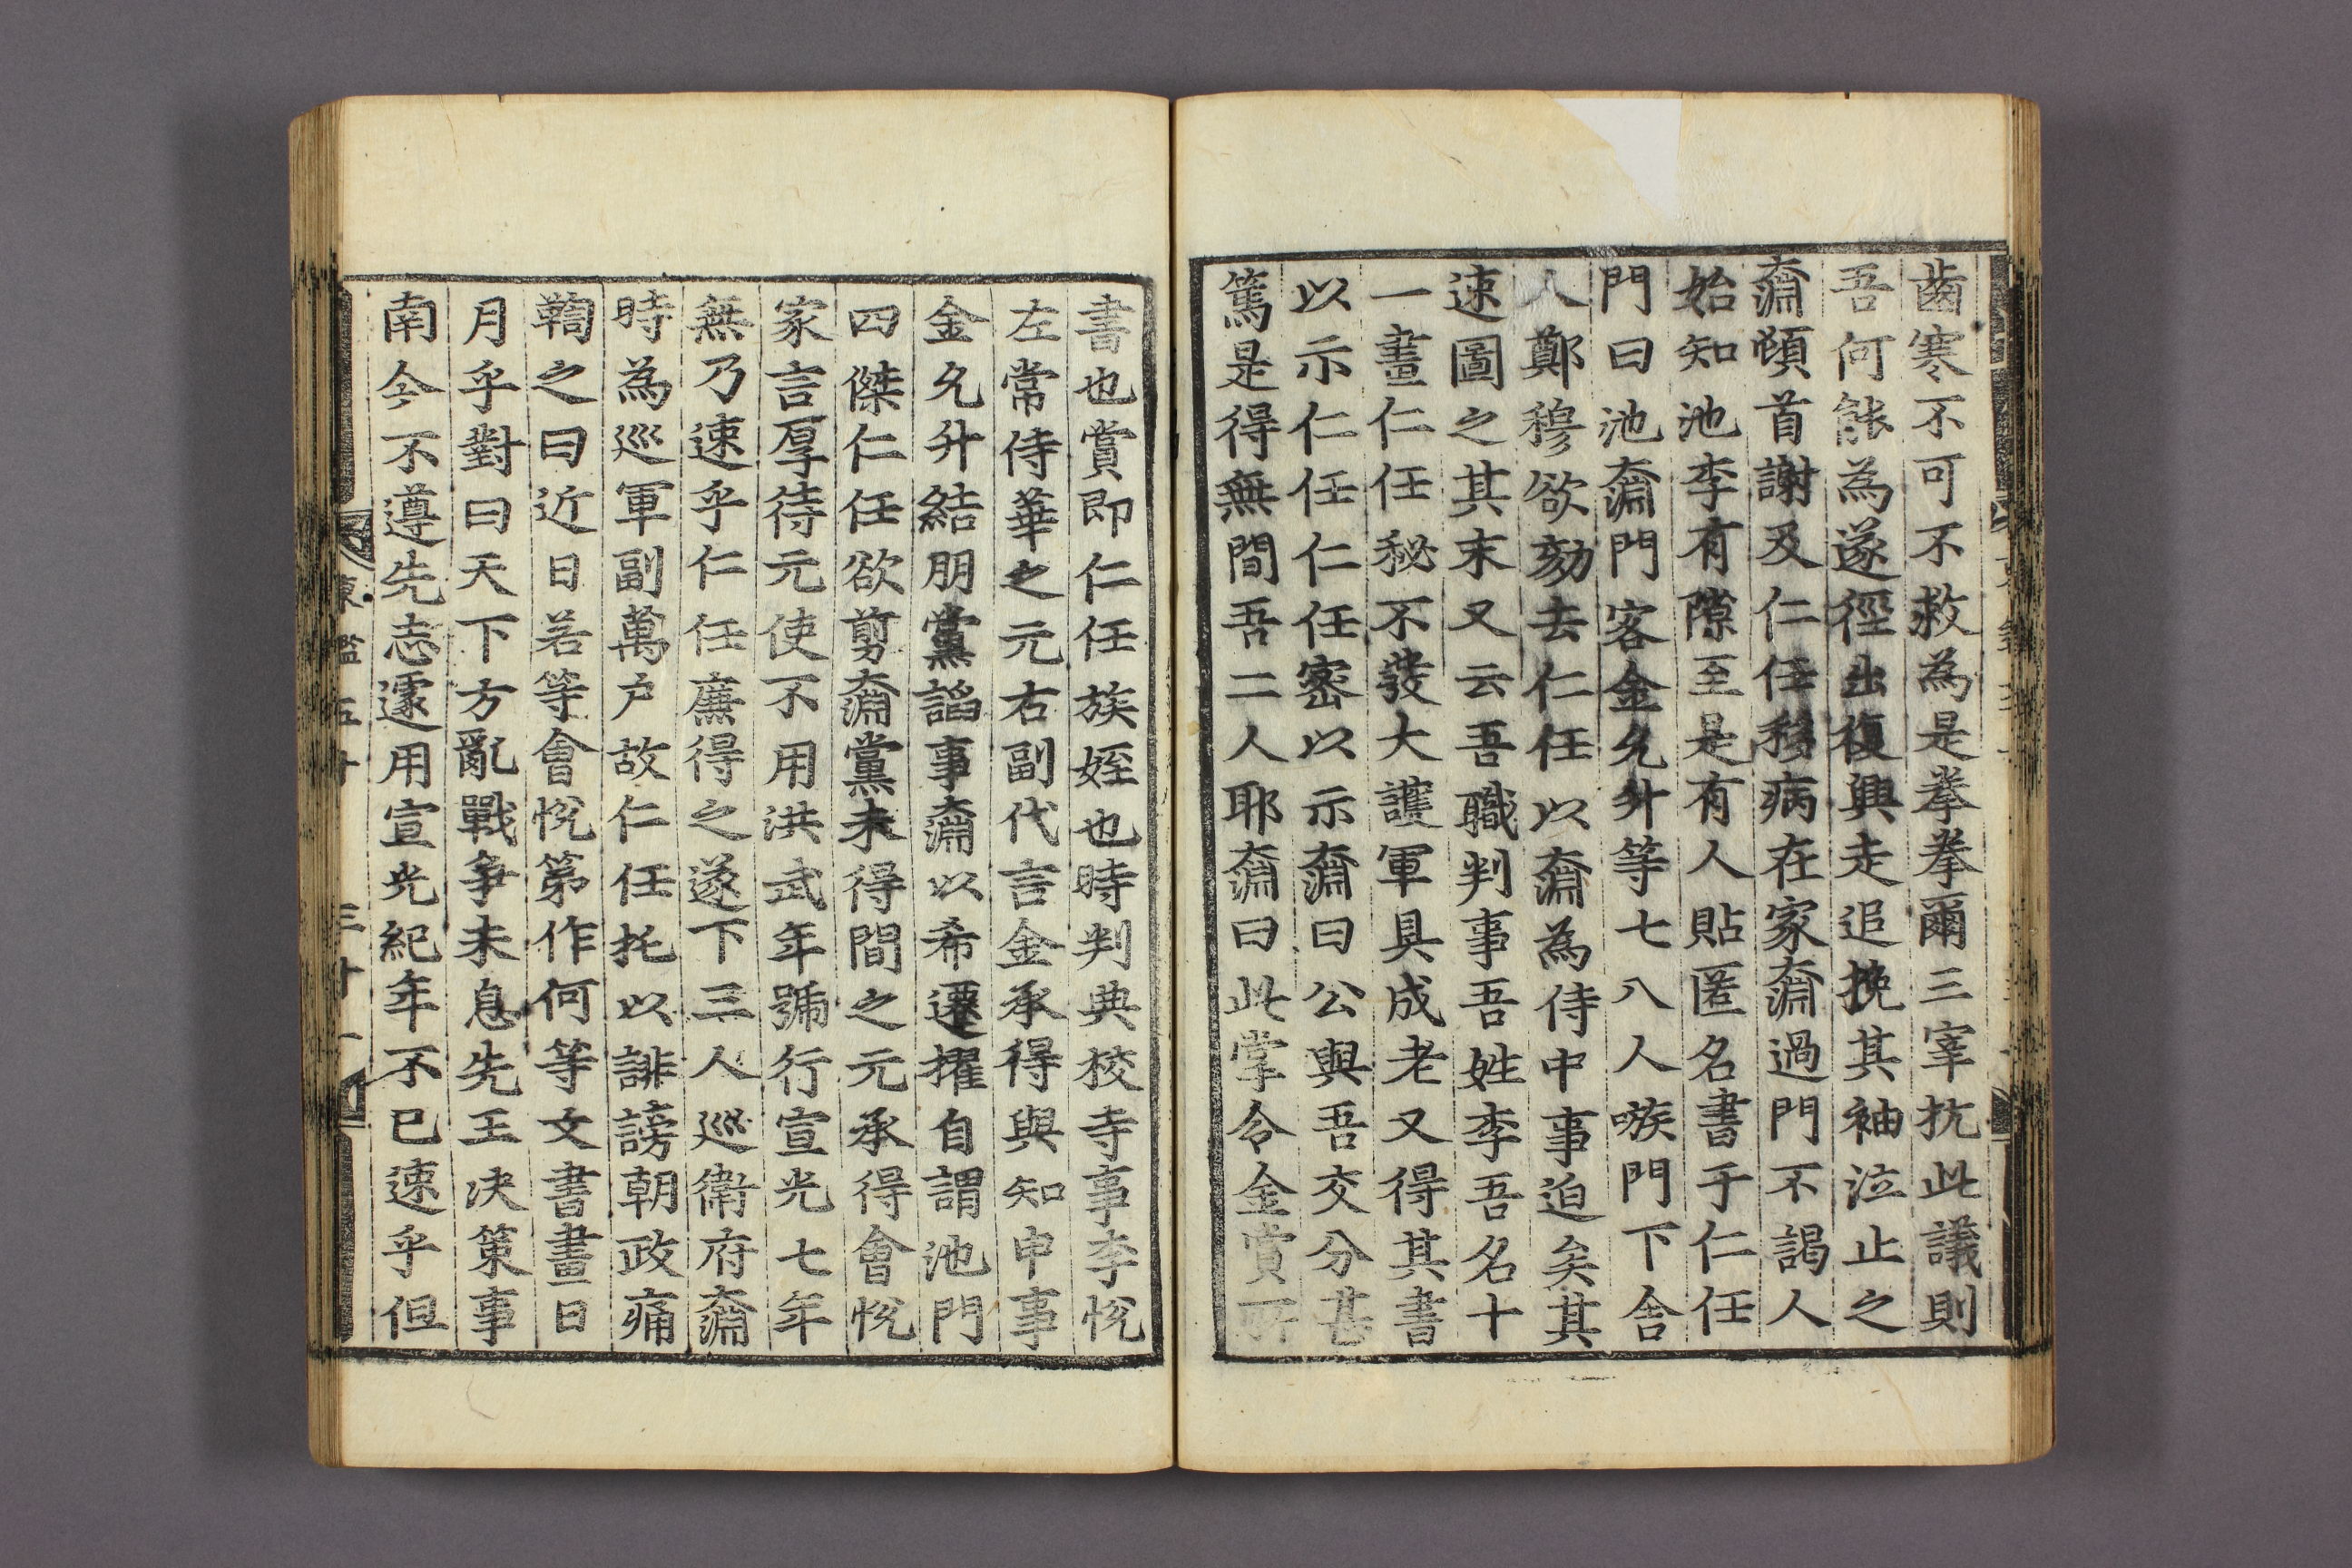 齒寒不可不救為是拳拳爾三宰抗此議則
吾何能為遂徑出復興走追挽其袖泣止之
奫頓首謝及仁任移病在家奫過門不謁人
始知池李有隙至是有人貼匿名書于仁任
門曰池奫門客金允升等七八人嗾門下舍
人鄭穆欲劾去仁任以奫為侍中事迫矣其
速圖之其末又云吾職判事吾姓李吾名十
一畫仁任秘不發大護軍具成老又得其書
以示仁任仁任密以示奫曰公與吾交分甚
篤是得無間吾二人耶奫曰此掌令金賞所
書也賞即仁任族姪也時判典校寺事李悅
左常侍華之元右副代言金承得與知申事
金允升結朋黨謟事奫以希遷擢自謂池門
四傑仁任欲剪奫黨未得間之元承得會悅
家言厚待元使不用洪武年號行宣光七年
無乃速乎仁任廉得之遂下三人巡衛府奫
時為巡軍副萬户故仁任托以誹謗朝政痛
鞫之曰近日若等會悅第作何等文書畫日
月乎對曰天下方亂戰爭未息先王决策事
南今不遵先志遽用宣光紀年不已速乎但
東鑑五十 三十一